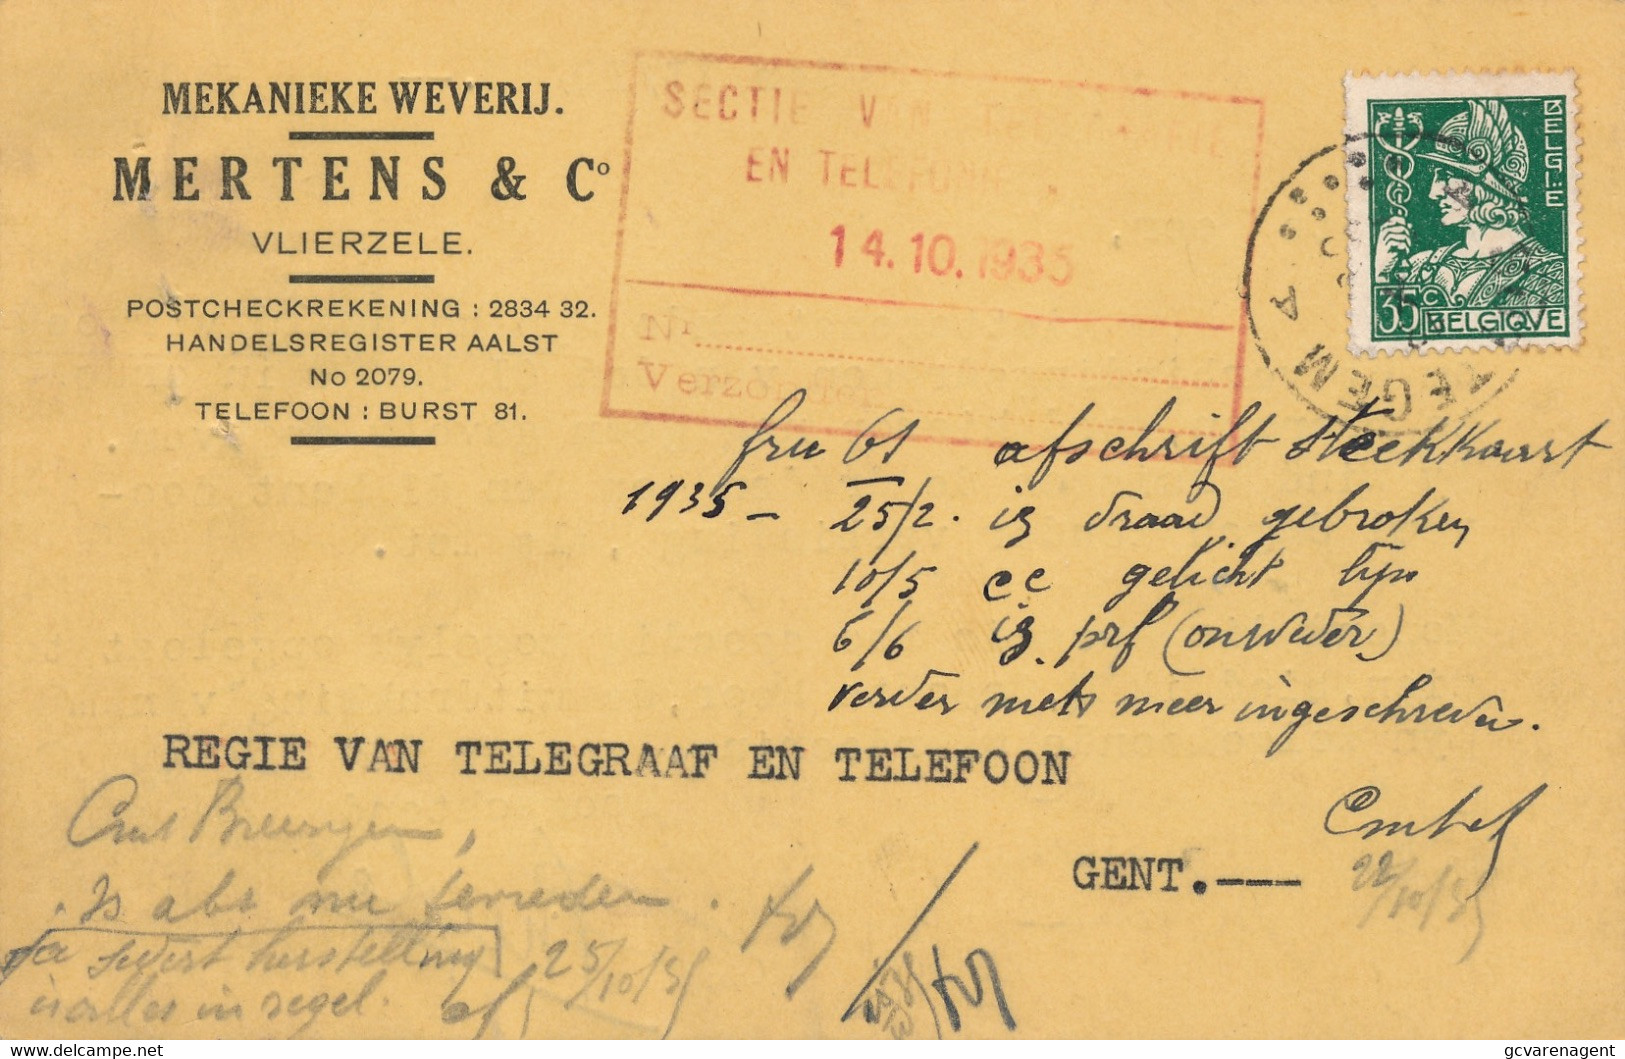 MEKANIEKE WEVERIJ.
MERTENS & Co
VLIERZELE.
POSTCHECKREKENING : 2834 32.
HANDELSREGISTER AALST
No 2079.
TELEFOON : BURST 81.
SECTIE VAN TELEGRAFIE
EN TELEFONIE
14.10.1935
Nr
Verzonden
BELGIË
35 C BELGIQVE
EGEM A
61 afschrift steekkaart
1935 - 25/2. is draad gebroken
10/5 cc gelicht lijn
6/6 is prf (onweder)
verder niets meer ingeschreven.
REGIE VAN TELEGRAAF EN TELEFOON
GENT.---
22/10/35
Is abt nu tevreden.
ja sedert herstelling 25/10/35
is alles in regel.